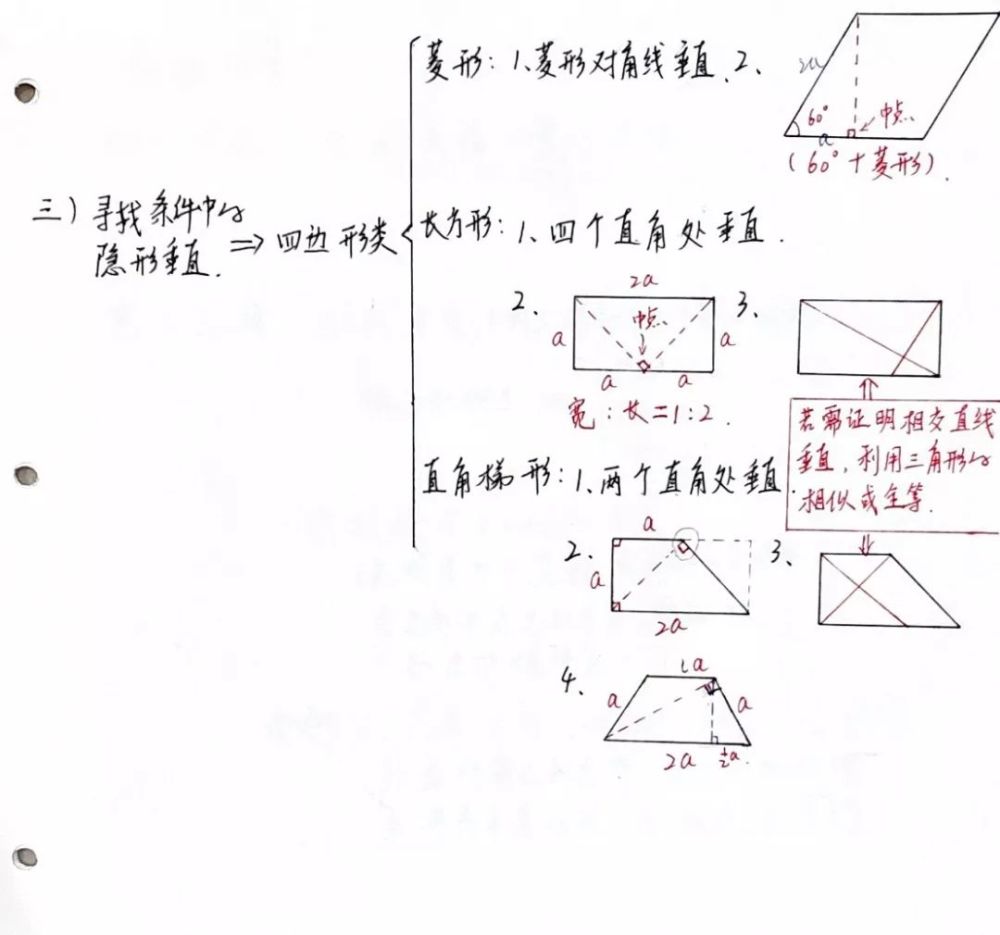 菱形：1、菱形对角线垂直．2、
2a
60°
中点
a
（60°＋菱形）．
三）寻找条件中的
隐形垂直．⇒ 四边形类
长方形：1、四个直角处垂直．
2．
2a
中点
a
a
a
a
宽：长＝1：2．
3、
若需证明相交直线
垂直，利用三角形的
相似或全等．
直角梯形：1、两个直角处垂直．
2．
a
a
2a
3、
4、
a
a
a
2a
½a